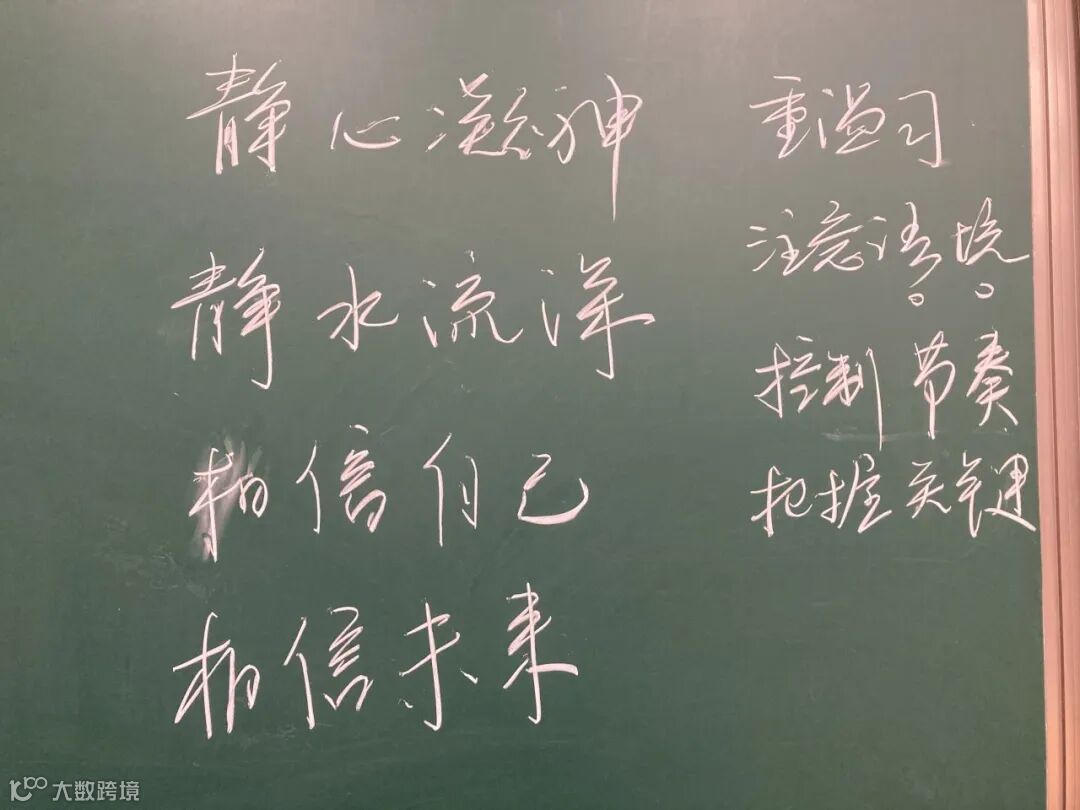 静心凝神
静水流深
相信自己
相信未来
重温习
注意语境
控制节奏
把握关键
大数跨境